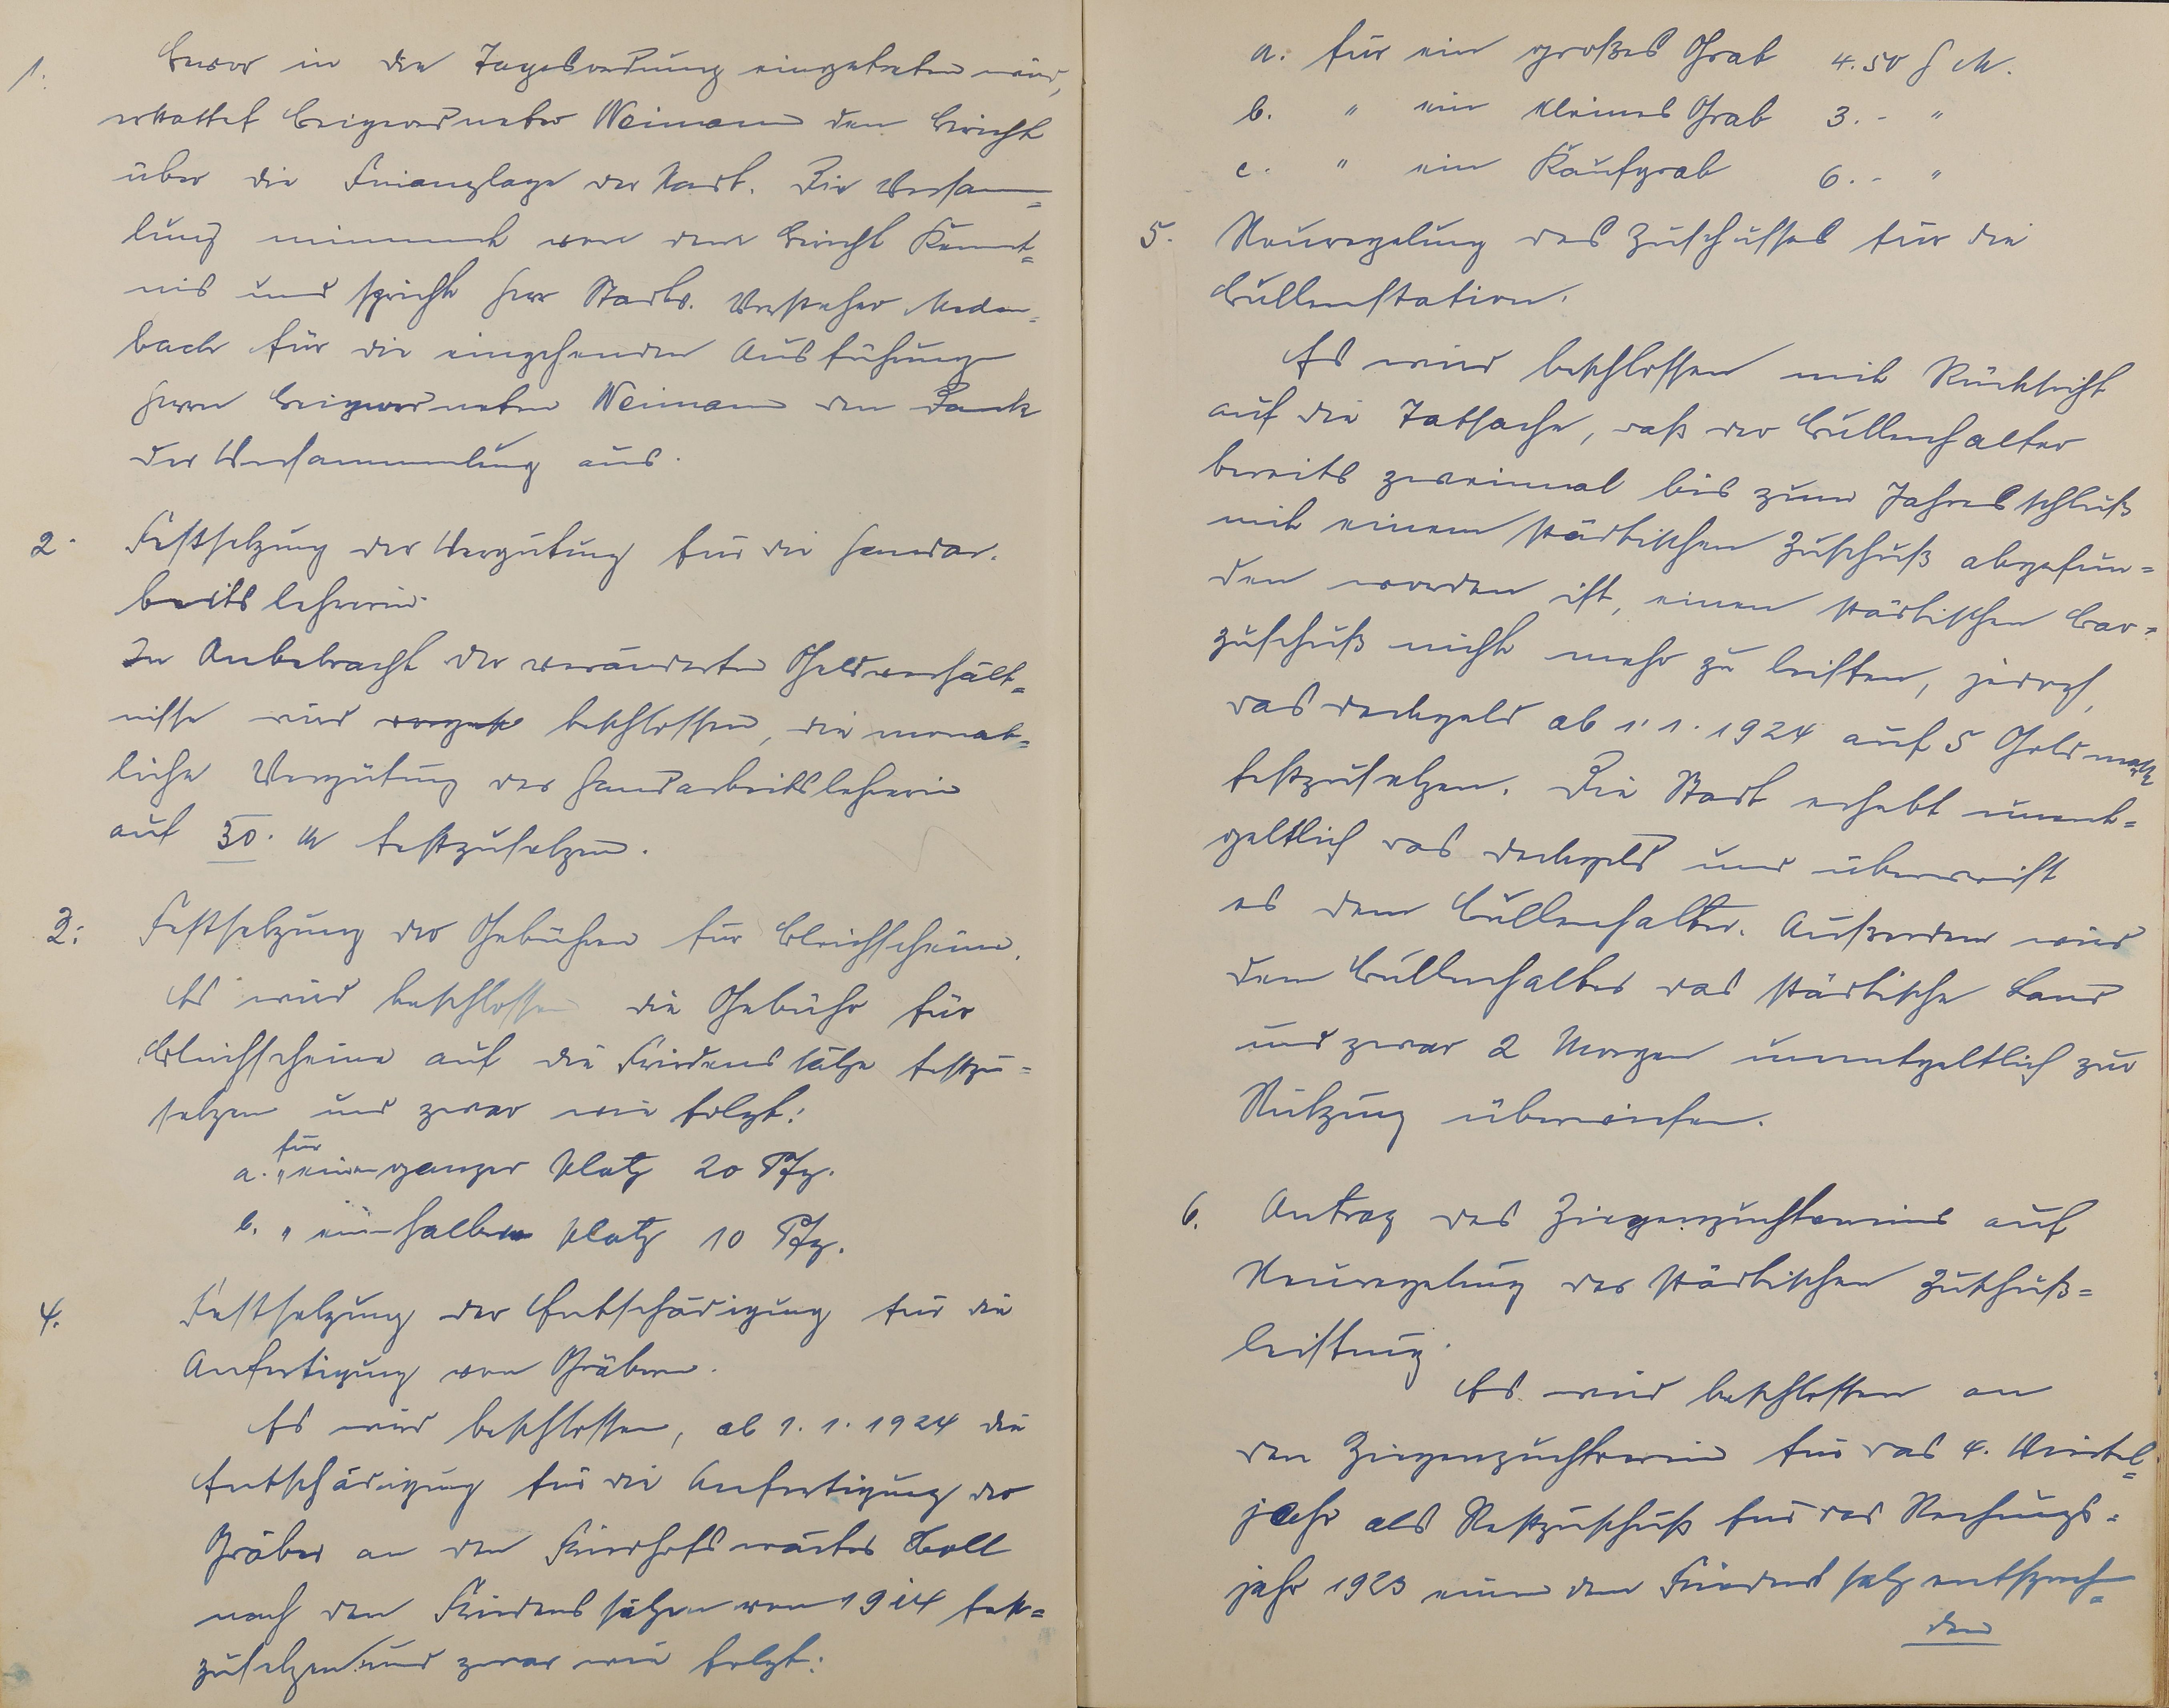 1. Bevor in die Tagesordnung eingetreten wird,
erstattet Beigeordneter Weimann den Bericht
über die Finanzlage der Stadt. Die Versamm=
lung nimmt von dem Bericht Kennt=
nis und spricht Herr Stadtv. Vorsteher Meden=
bach für die eingehenden Ausführungen
Herrn Beigeordneten Weimann den Dank
der Versammlung aus.
2. Festsetzung der Vergütung für die Handar-
beitslehrerin.
In Anbetracht der veränderten Geldverhält=
nisse wird beschlossen, die monat=
liche Vergütung der Handarbeitslehrerin
auf 30. M festzusetzen.
3. Festsetzung der Gebühren für Bleichscheine.
Es wird beschlossen die Gebühr für
Bleichscheine auf die Friedenssätze festzu=
setzen und zwar wie folgt:
für
a. " einen ganzer Platz 20 Pfg.
b. " ein halben Platz 10 Pfg.
4. Festsetzung der Entschädigung für die
Anfertigung von Gräbern.
Es wird beschlossen, ab 1. 1. 1924 die
Entschädigung für die Anfertigung der
Gräber an den Friedhofswärter Boll
nach den Friedenssätzen von 1914 fest=
zusetzen und zwar wie folgt:
a. für ein großes Grab 4.50 G M.
b. " ein kleines Grab 3.- "
c. " ein Kaufgrab 6.- "
5. Neuregelung des Zuschusses für die
Bullenstation.
Es wird beschlossen mit Rücksicht
auf die Tatsache, daß der Bullenhalter
bereits zweimal bis zum Jahresschluß
mit einem städtischen Zuschuß abgefun=
den worden ist, einen städtischen Bar=
zuschuß nicht mehr zu leisten, jedoch,
das Deckgeld ab 1. 1. 1924 auf 5 Goldmark
festzusetzen. Die Stadt erhebt unent=
geltlich das Deckgeld und überweist
es dem Bullenhalter. Außerdem wird
dem Bullenhalter das städtische Land
und zwar 2 Morgen unentgeltlich zur
Nutzung überwiesen.
6. Antrag des Ziegenzuchtvereins auf
Neuregelung der städtischen Zuschuß=
leistung.
Es wird beschlossen an
den Ziegenzuchtverein für das 4. Viertel=
jahr als Restzuschuß für das Rechnungs=
jahr 1923 einen dem Friedenssatz entsprech=
den